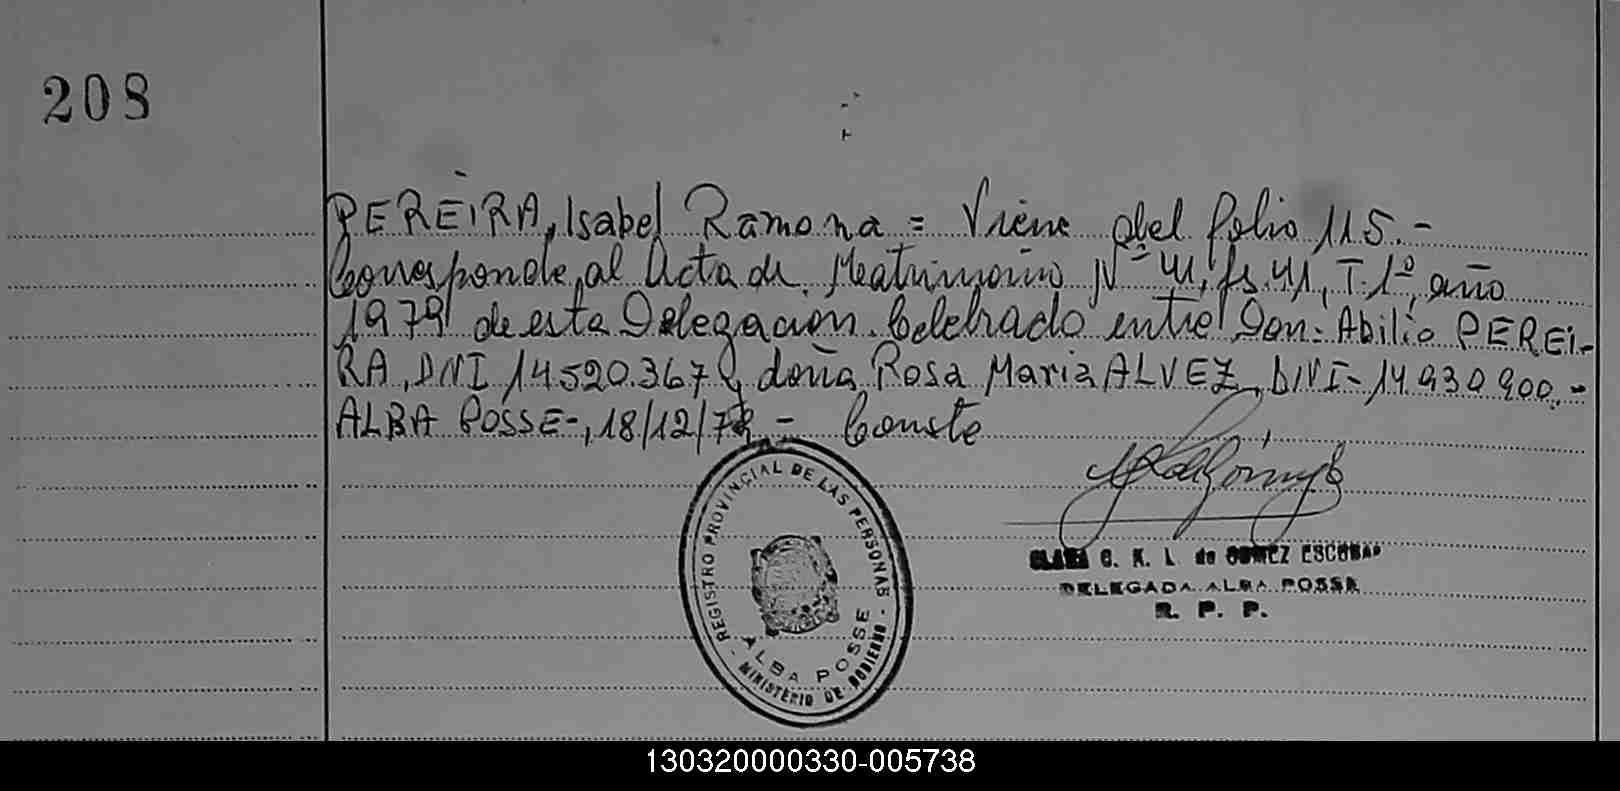 208
PEREIRA, Isabel Ramona = Viene del folio 115.-
Corresponde al Acta de Matrimonio Nº 41, fs. 41, T. 1º, año
1979 de esta Delegación. Celebrado entre Don: Abilio PEREI-
RA, DNI 14.520.367 y doña Rosa Maria ALVEZ, DNI- 14.930.900.-
ALBA POSSE-, 18/12/79 - Conste
REGISTRO PROVINCIAL DE LAS PERSONAS
ALBA POSSE
- MINISTERIO DE GOBIERNO -
C. K. L. de GOMEZ ESCOBAR
DELEGADA ALBA POSSE
R. P. P.
130320000330-005738